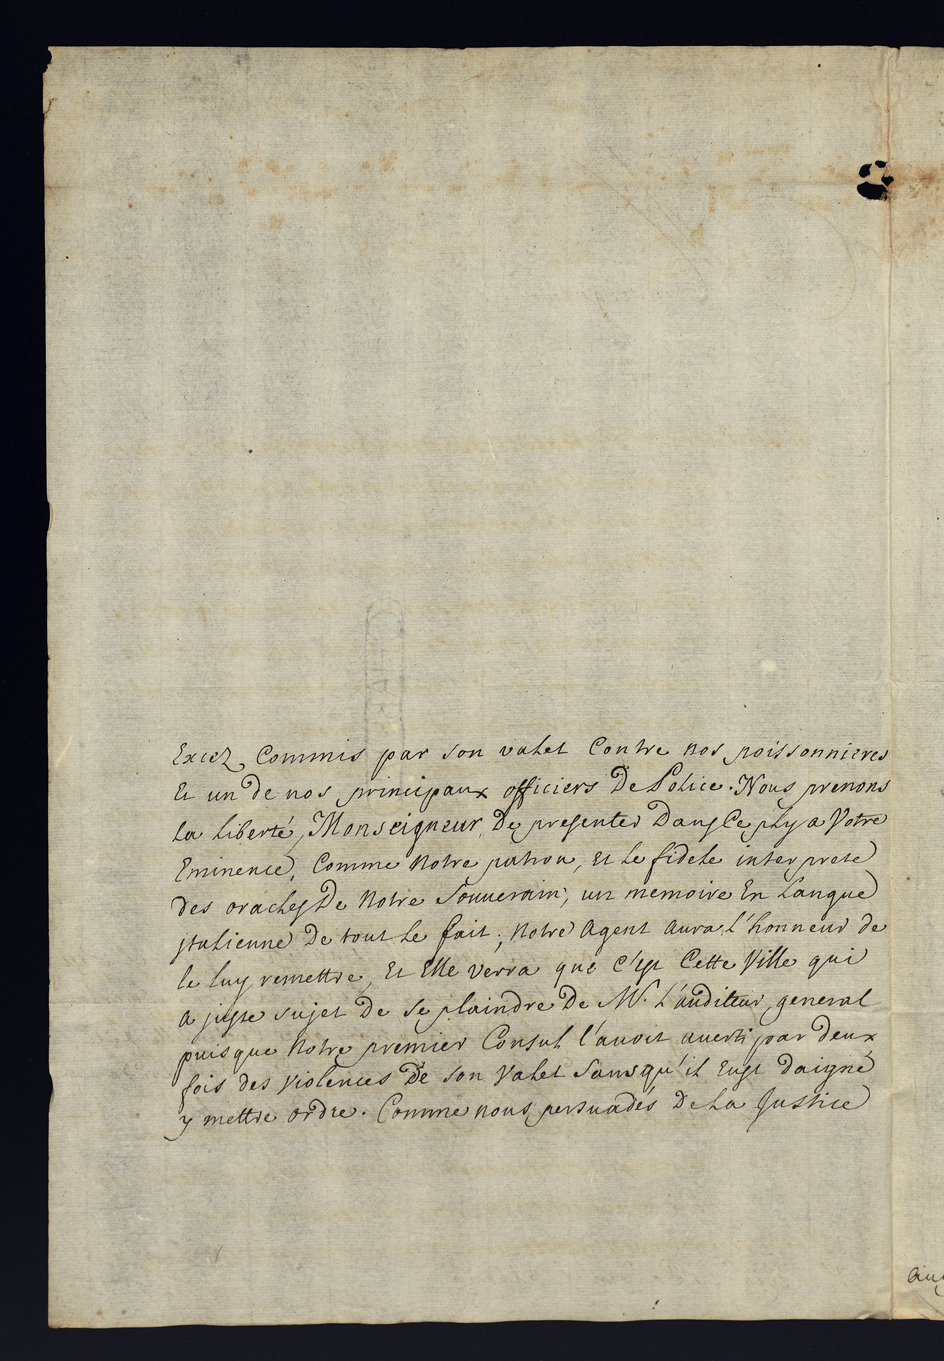 Excez Commis par son valet Contre nos poissonnieres
Et un de nos principaux officiers De Police. Nous prenons
la liberté, Monseigneur, De presenter Dans Ce ply a Votre
Eminence, Comme Notre patron, et le fidele interprete
des oracles De Notre Souverain, un memoire En Langue
jtalienne De tout le fait; Notre Agent aura l'honneur de
le luy remettre, Et Elle verra que C'est Cette Ville qui
a juste sujet De se plaindre De Mr. l'auditeur general
puisque Notre premier Consul l'avoit averti par deux
fois des violences De son Valet Sans qu'il Eust daigné
y mettre ordre. Comme nous persuadés De La Justice